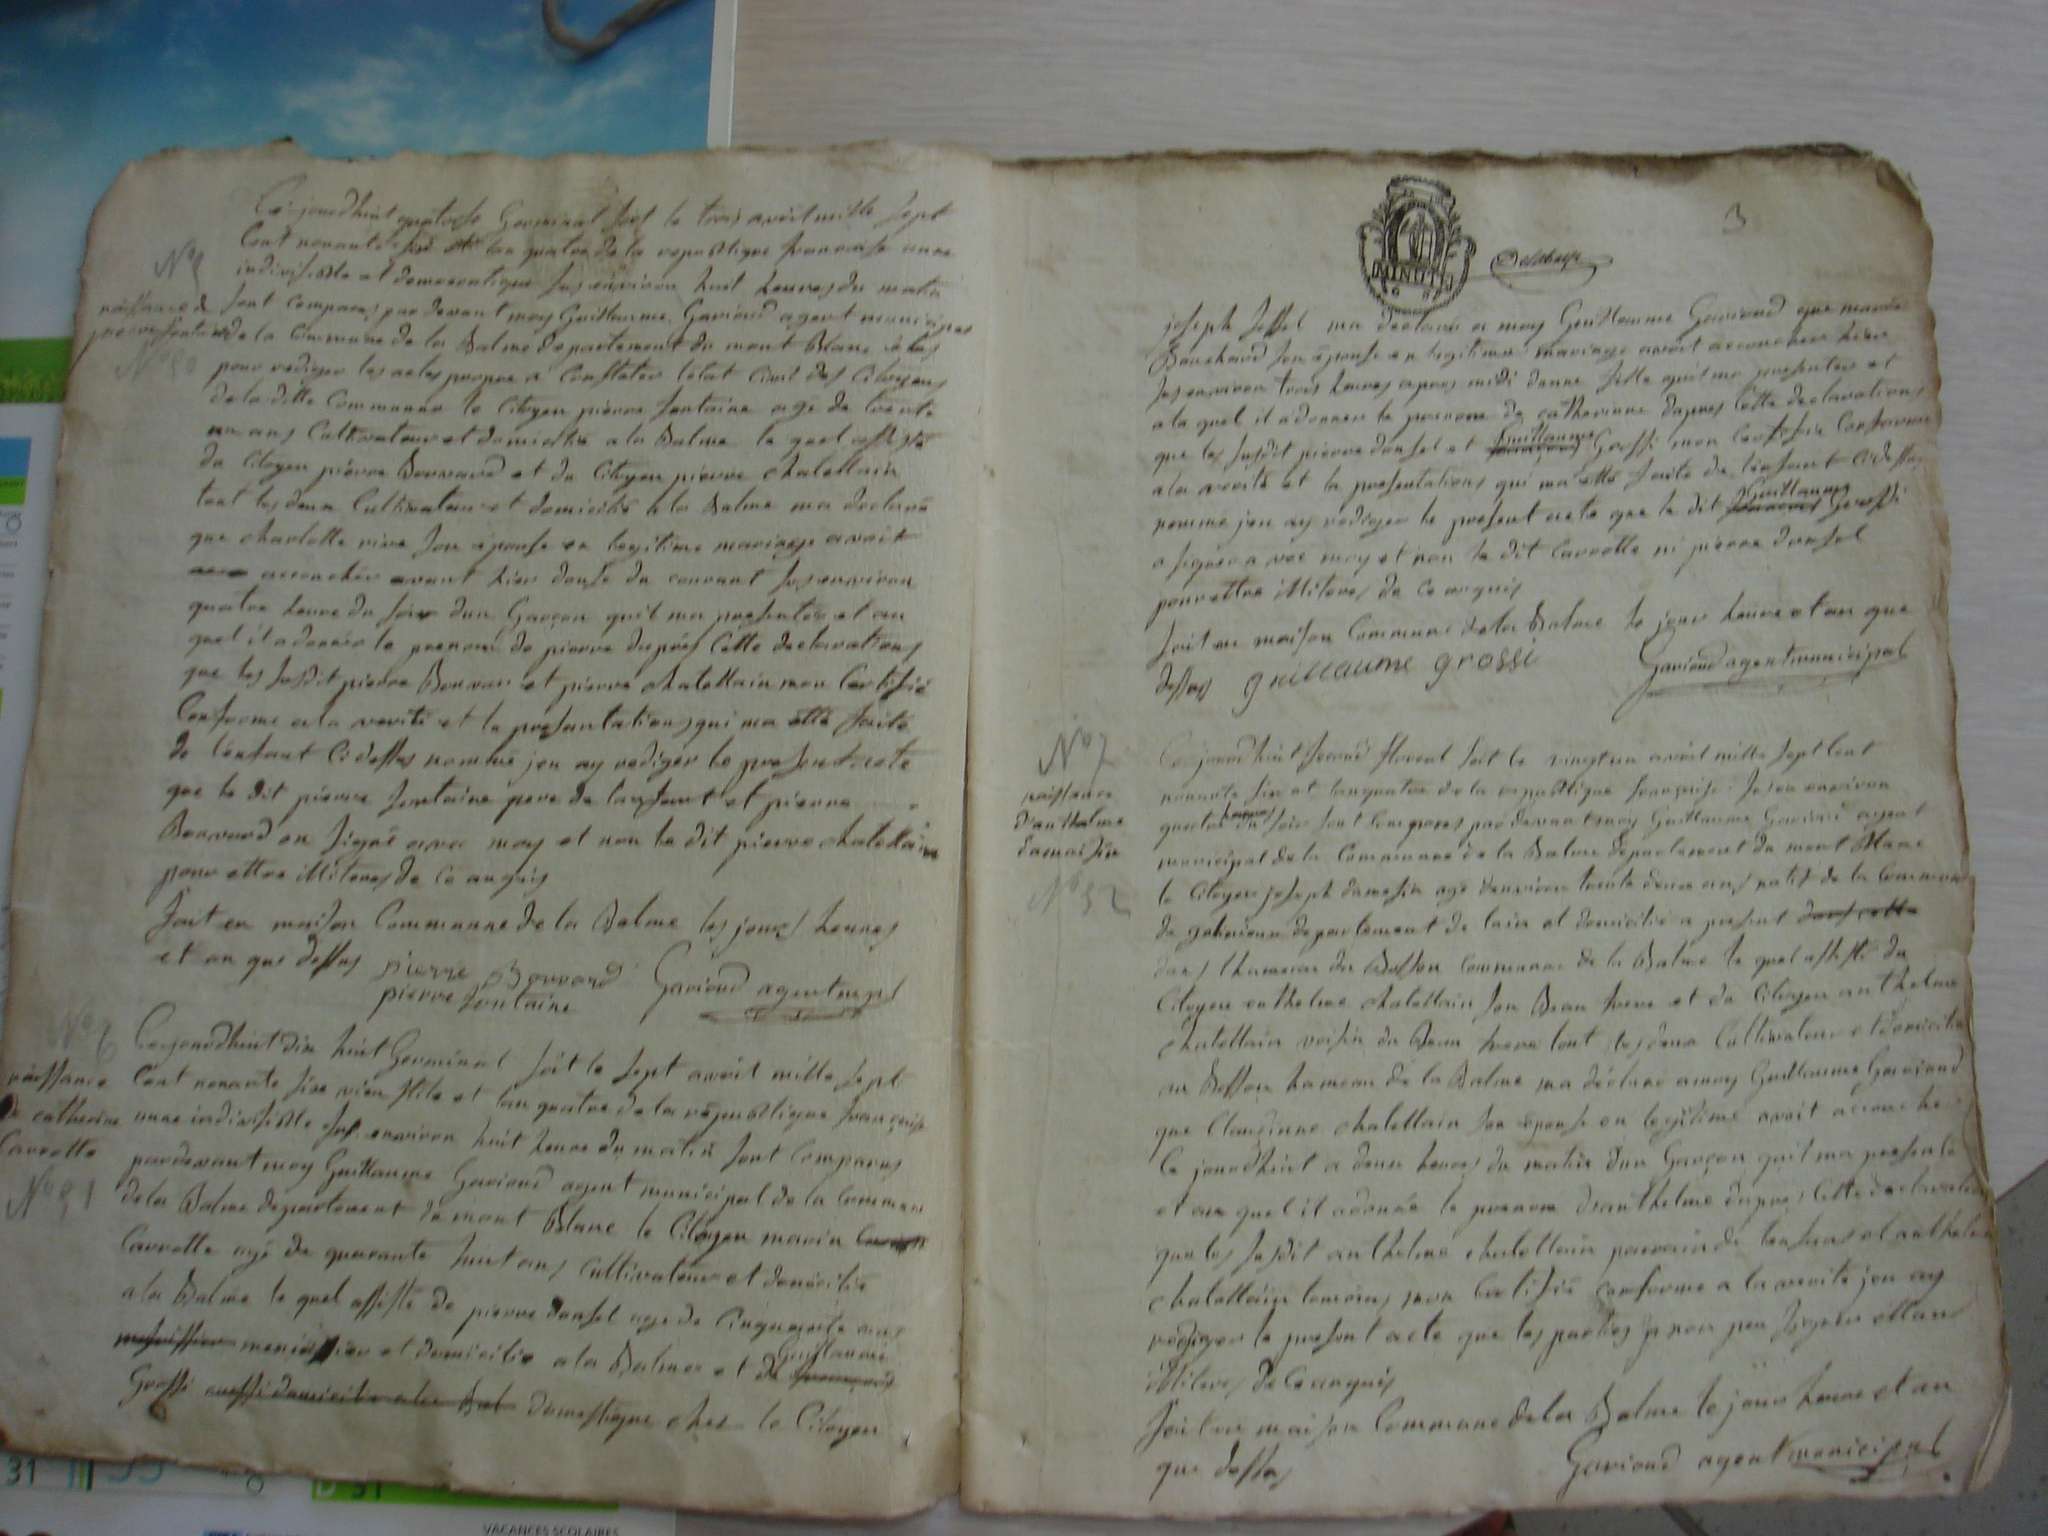 Ce jourdhuit quatorse Germinal soit le trois avril mille sept
Cent nonante six et lan quatre de la republique francoise une
N° 5
indivisible et democratique sus environ huit heures du matin
naissance de
sont comparus par devant moy Guillaume Gavioud agent municipal
pierre fontaine
de la Commune de la Balme departement du mont Blanc elus
N° 50
pour rediger les actes propre a Constater létat Civil des Citoyens
de la ditte Commune le Citoyen pierre fontaine agé de trente
un ans Cultivateur et domicilié a la Balme le quel assisté
du Citoyen pierre Bovvard et du Citoyen pierre chatellain
tout les deux Cultivateur et domicilié a la Balme ma declaré
que charlotte rive son épouse en legitime mariage avoit
accouchér avant hier douse du courant sus environ
quatre heure du soir dun Garçon quil ma presentér et au
quel il a donnér le prenom de pierre daprés Cette declarations
que les susdit pierre Bovvar et pierre chatellain mon Certifié
Conforme a la verité et la presentations qui ma etté faite
de lenfant Cidessus nommé jen ay rediger le present acte
que le dit pierre fontaine pere de lanfant et pierre
Bovvard on signé avec moy et non le dit pierre chatellain
pour ettre illiteres de ce anquis
fait en maison Commune de la Balme les jours heures
et an que dessus pierre Bovvard Gavioud agent mpl
pierre fontaine
N° 6
Cejourdhuit dix huit Germinal soit le sept avril mille sept
naissance
Cent nonante six vieu stile et lan quatre de la republique françoise
de catherine
une indivisible sus environ huit heure du matin sont Comparus
Carrotte
pardevant moy Guillaume Gavioud agent municipal de la Commune
N° 51
de la Balme departement du mont Blanc le Citoyen marin
Carrotte agé de quarante huit ans Cultivateur et domicilié
a la Balme le quel assisté de pierre dansel age de Cinquante ans
menuissier et domicilié a la Balme et de Guillaume
Grossi aussi domicilié a la Bal domestique chez le Citoyen
3
MINUTE
joseph ma declaré a moy Guillaume Gavioud que
Bouchard son épouse en legitime mariage avoit accoucher hier
sus environ trois heures apres midi dunne fille quil ma presenter et
a la quel il a donner le prenom de catherinne dapres Cette declarations
que les susdit pierre dansel et Guillaume Grossi mon Certifié Conforme
a la verité et la presentations qui ma etté faite de lenfant Cidessus
nommé jen ay rediger le present acte que le dit Guillaume Grossi
a signér avec moy et non le dit Carrotte ni pierre dansel
pour ettre illiteres de ce anquis
fait en maison Commune de la Balme le jour heure et an que
dessus guillaume grossi Gavioud agent municipal
N° 7
Ce jourdhuit second floreal soit le vingtun avril mille sept Cent
naissance
nonante six et lan quatre de la republique françoise sus environ
d'anthelme
quatre heures du soir sont Compares par devant moy Guillaume Gavioud agent
damaisin
municipal de la Commune de la Balme departement du mont Blanc
N° 52
le Citoyen joseph damesin agé denviron trente deux ans natif de la Commune
de departement de lain et domicilié a present
dans lhameau du Besson Commune de la Balme le quel assisté du
Citoyen anthelme chatellain son Beau frere et du Citoyen anthelme
chatellain voisin du Beau frere tout les deux Cultivateur et domicilié
au Besson hameau de la Balme ma déclaré a moy Guillaume Gavioud
que Claudinne chatellain son épouse en legitime avoit accouché
Ce jourdhuit a deux heures du matin dun Garçon quil ma presenté
et au quel il a donné le prenom danthelme dapres Cette declaration
que les susdit anthelme chatellain parrain de lenfans et anthelme
chatellain temoins mon Certifié Conforme a la verité jen ay
rediger le present acte que les parties non peu signér ettant
illiteres de Ce anquis
fait en maison Commune de la Balme le jour heure et an
que dessus Gavioud agent municipal
VACANCES SCOLAIRES
31
31